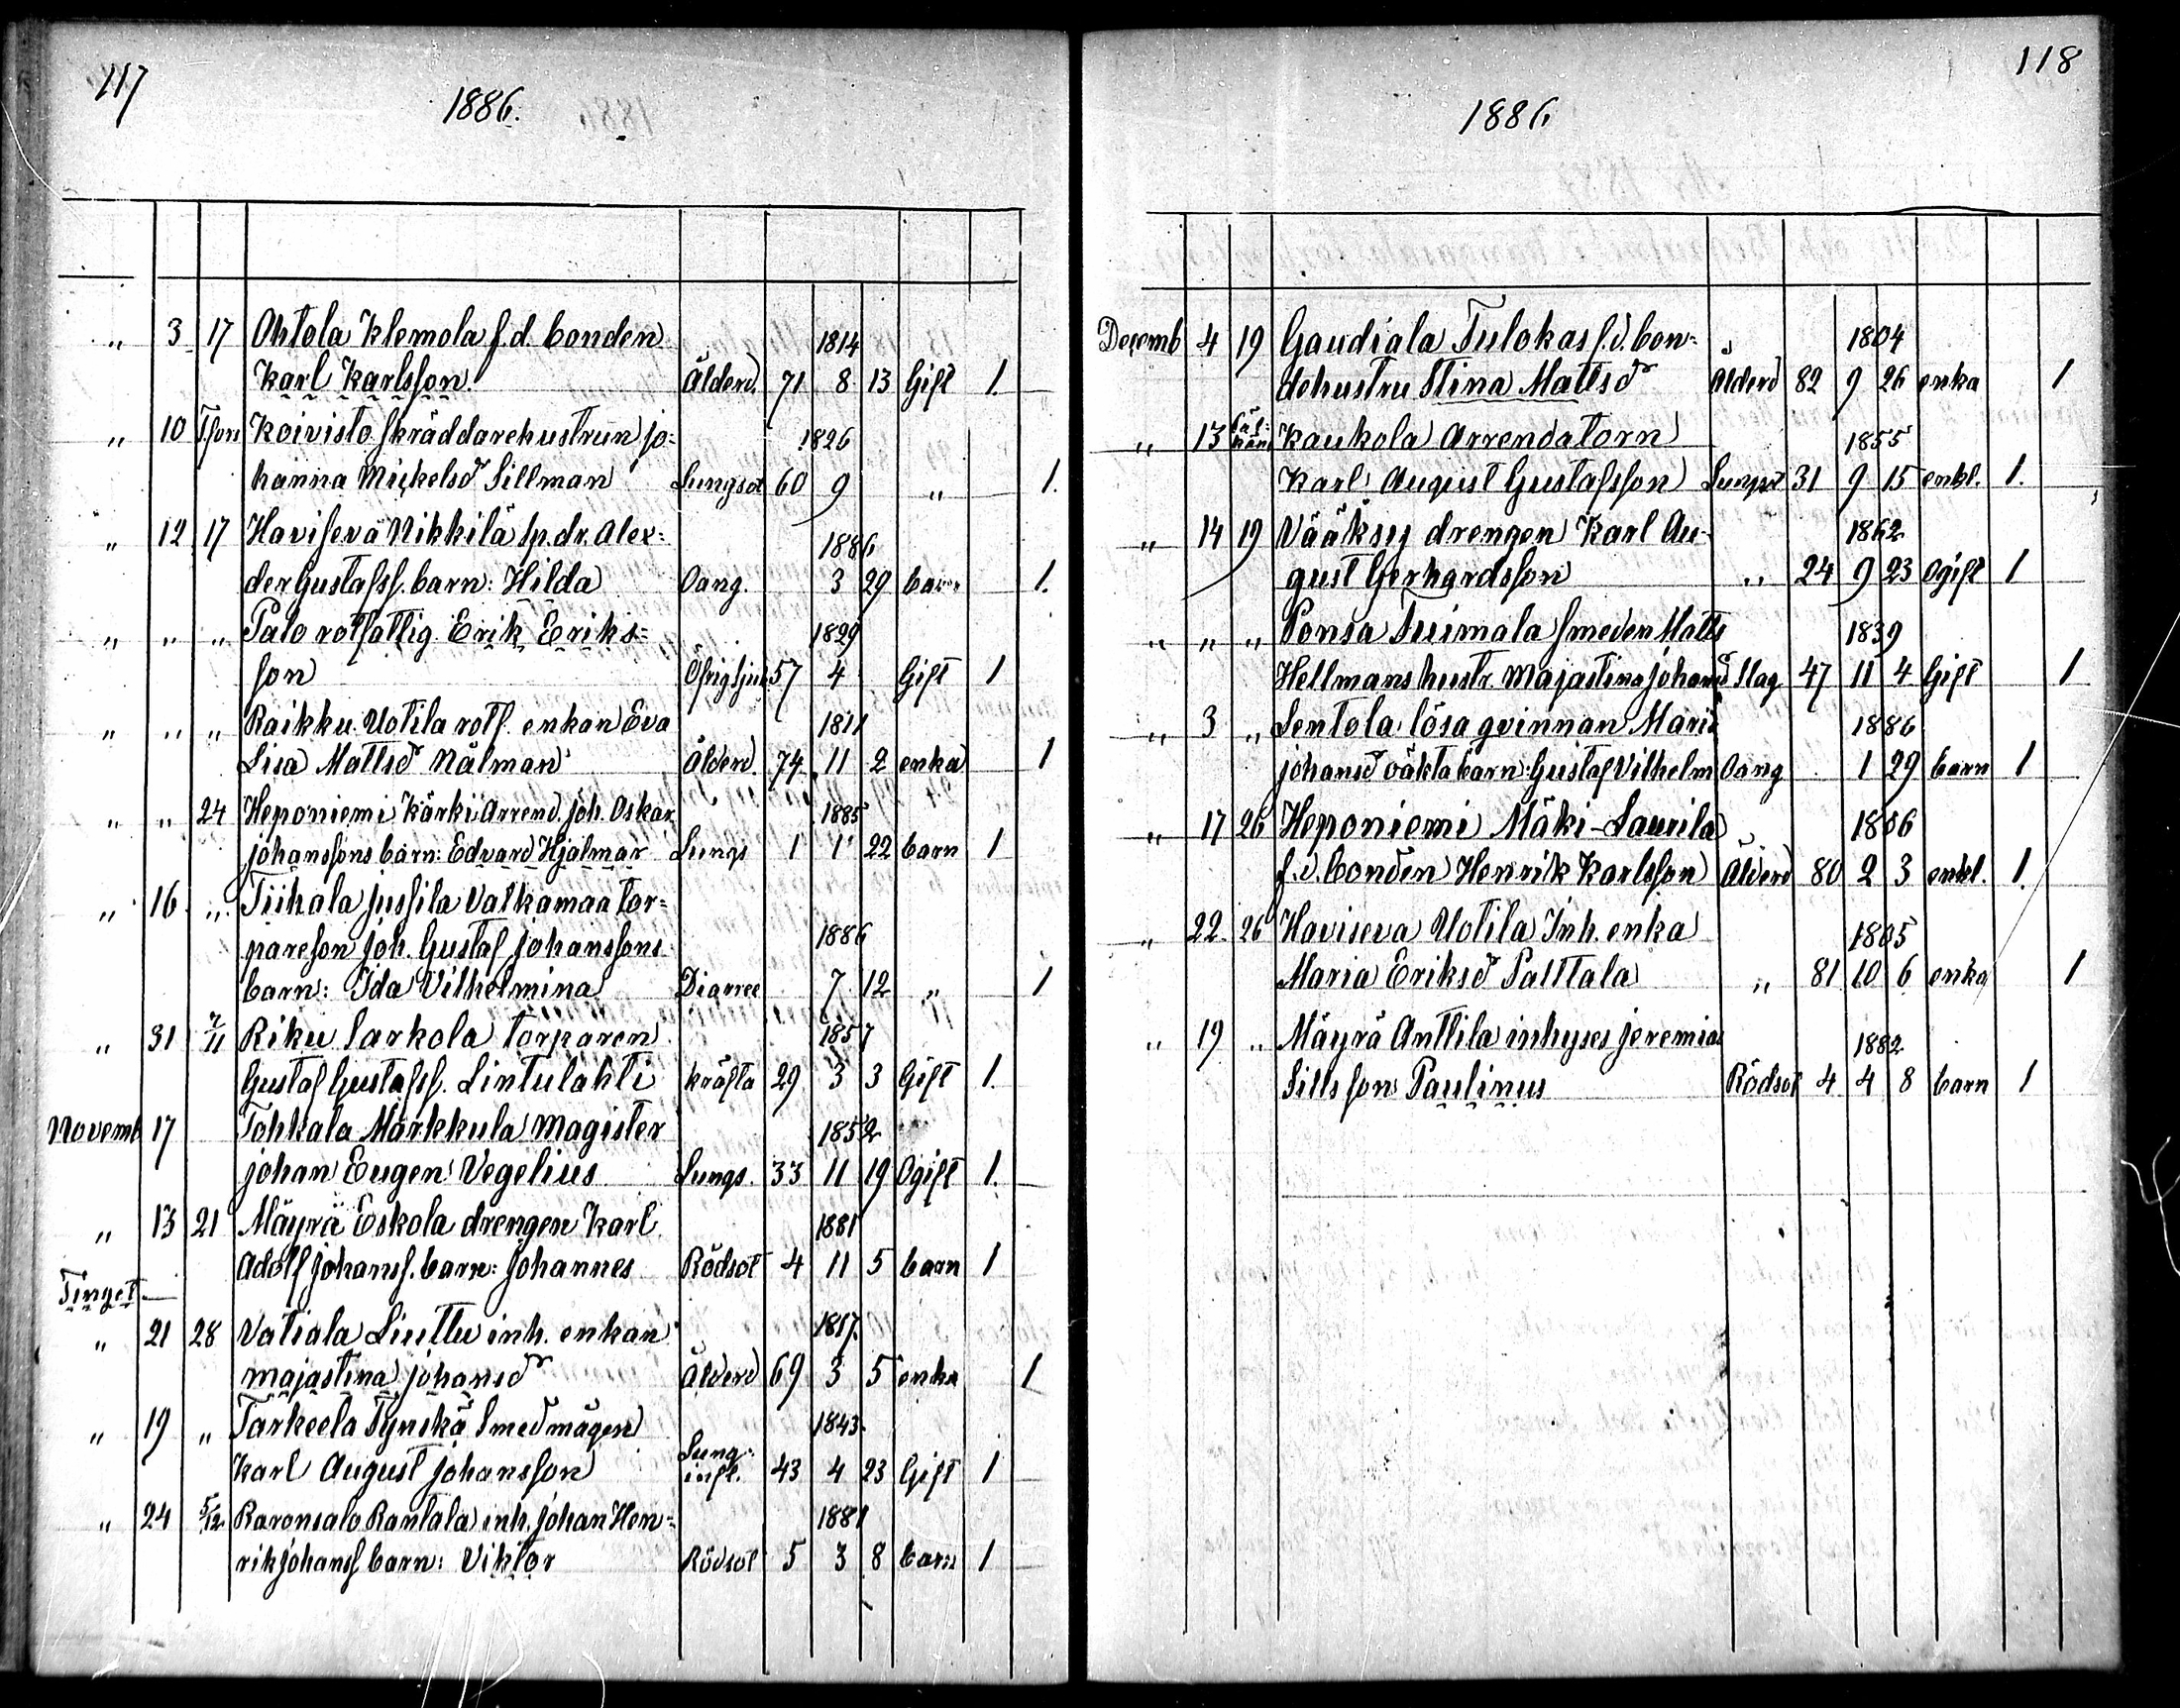 117
1886.
„ 3 17 Ohtola Klemola f.d. bonden 1814
Karl Karlsson Ålderd. 71 8 13 Gift 1.
„ 10 Koivisto skräddarehustrun Jo= 1826
hanna Mickelsd Sillman Lungsot 60 9 „ 1.
„ 12 17 Haviseva Nikkilä sp. dr. Alex= 1886
der Gustafss. barn: Hilda Oang. 3 29 barn 1.
„ „ „ Palo rotfattig Erik Eriks= 1829
son 57 4 Gift 1
„ „ „ Raikku Uotila rotf. enkan Eva 1811
Lisa Mattsd Nålman Ålderd. 74 11 2 enka 1
„ „ 24 Heponiemi Kärki Arrend. Joh. Oskar 1885
Johanssons barn: Edvard Hjalmar Lungs 1 1 22 barn 1
„ 16 „ Tiihala Jussila Valkamaa tor=
pareson Joh. Gustaf Johanssons 1886
barn: Ida Vilhelmina Diarree 7 12 „ 1
„ 31 7/11 Riku Sarkola torparen 1857
Gustaf Gustafss. Lintulahti kräfta 29 3 3 Gift 1.
Novemb 17 Tohkala Markkula Magister 1852
Johan Eugen Vegelius Lungs. 33 11 19 Ogift 1.
„ 13 21 Mäyrä Eskola drengen Karl 1881
Adolf Johanss. barn: Johannes Rödsot 4 11 5 barn 1
Tinget
„ 21 28 Vatiala Liuttu inh. enkan 1817.
Majastina Johansd Ålderd 69 3 5 enka 1
„ 19 „ Tarkeela Tynskä Smedmågen 1843.
Karl August Johansson Lung= infl. 43 4 23 Gift 1
„ 24 5/12 Baronsalo Rantala inh. Johan Hen= 1881
rik Johanss barn: Viktor Rödsot 5 3 8 barn 1
118
1886
Decemb 4 19 Gaudiala Tulokas f.d. bon= 1804
dehustru Stina Mattsd Ålderd 82 9 26 enka 1
„ 13 Kaukola Arrendatorn 1855
Karl August Gustafsson Lungsot 31 9 15 enkl. 1.
„ 14 19 Vääksy drengen Karl Au- 1862
gust Gerhardsson „ 24 9 23 Ogift 1
„ „ „ Ponsa Tuimala smeden Matts 1839
Hellmans hustr. Majastina Johansd Slag 47 11 4 Gift 1
„ 3 „ Lentola lösa qvinnan Maria 1886
Johansd oäkta barn: Gustaf Vilhelm Oang 1 29 barn 1
„ 17 26 Heponiemi Mäki-Laurila 1806
f.d. bonden Henrik Karlsson Ålderd 80 2 3 enkl. 1.
„ 22 26 Haviseva Uotila Inh. enka 1805
Maria Eriksd Palttala „ 81 10 6 enka 1
„ 19 „ Mäyrä Anttila inhyses Jeremias 1882
Sills son Paulinus Rödsot 4 4 8 barn 1